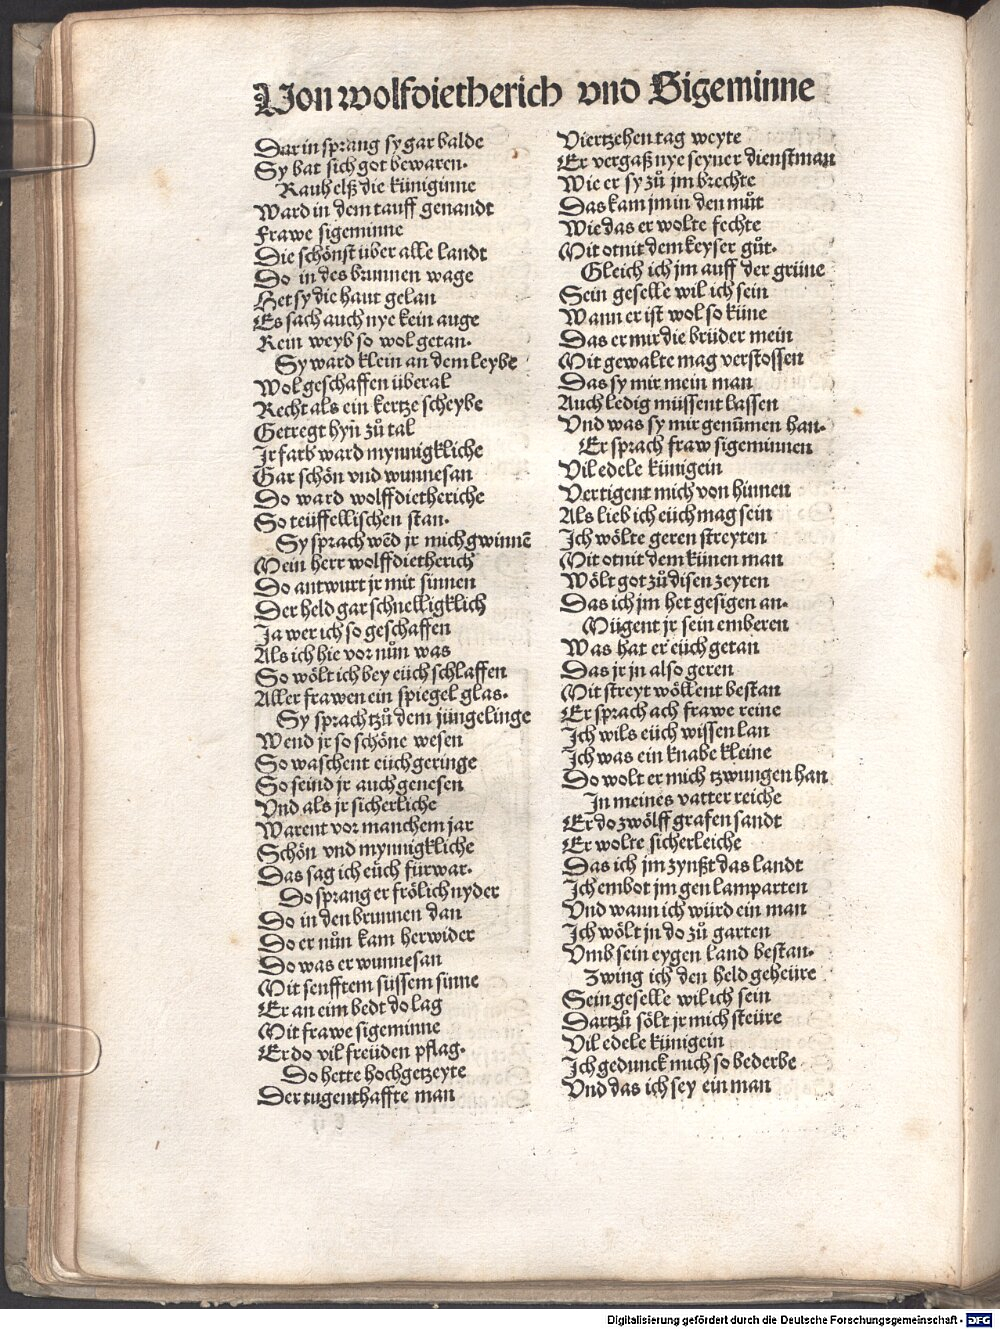 Von wolfdietherich vnd Sigeminne
Dar in sprang sy gar balde
Sy bat sich got bewaren.
Rauh elß die küniginne
Ward in dem tauff genandt
Frawe sigeminne
Die schönst über alle landt
Do in des brunnen wage
Het sy die haut gelan
Es sach auch nye kein auge
Kein weyb so wol getan.
Sy ward klein an dem leybe
Wol geschaffen überal
Recht als ein kertze scheybe
Getregt hyn̄ zů tal
Ir farb ward mynnigkliche
Gar schön vnd wunnesan
Do ward wolffdietheriche
So teüffellischen stan.
Sy sprach wēd jr mich gwinnē
Mein herr wolffdietherich
Do antwurt jr mit sinnen
Der held gar schnelligklich
Ja wer ich so geschaffen
Als ich hie vor nůn was
So wölt ich bey eüch schlaffen
Aller frawen ein spiegel glas.
Sy sprach tzů dem jüngelinge
Wend jr so schöne wesen
So waschent eüch geringe
So seind jr auch genesen
Vnd als jr sicherliche
Warent vor manchem jar
Schön vnd mynnigkliche
Das sag ich eüch fürwar.
Do sprang er frölich nyder
Do in den brunnen dan
Do er nůn kam herwider
Do was er wunnesan
Mit senfftem süssem sinne
Er an eim bedt do lag
Mit frawe sigeminne
Er do vil freüden pflag.
Do hette hochgetzeyte
Der tugenthaffte man
Viertzehen tag weyte
Er vergaß nye seyner dienstman
Wie er sy zů jm brechte
Das kam jm in den můt
Wie das er wolte fechte
Mit otnit dem keyser gůt.
Gleich ich jm auff der grüne
Sein geselle wil ich sein
Wann er ist wol so küne
Das er mir die brüder mein
Mit gewalte mag verstossen
Das sy mir mein man
Auch ledig müssent lassen
Vnd was sy mir genūmen han.
Er sprach fraw sigeminnen
Vil edele künigein
Vertigent mich von hinnen
Als lieb ich eüch mag sein
Ich wölte geren streyten
Mit otnit dem künen man
Wölt got zů disen zeyten
Das ich jm het gesigen an.
Mügent jr sein emberen
Was hat er eüch getan
Das jr jn also geren
Mit streyt wöllent bestan
Er sprach ach frawe reine
Ich wils eüch wissen lan
Ich was ein knabe kleine
Do wolt er mich tzwungen han
In meines vatter reiche
Er do zwölff grafen sandt
Er wolte sicherleiche
Das ich jm zynßt das landt
Ich embot jm gen lamparten
Vnd wann ich würd ein man
Ich wölt jn do zů garten
Vmb sein eygen land bestan.
Zwing ich den held geheüre
Sein geselle wil ich sein
Dartzů sölt jr mich steüre
Vil edele künigein
Ich gedunck mich so bederbe
Vnd das ich sey ein man
Digitalisierung gefördert durch die Deutsche Forschungsgemeinschaft - DFG